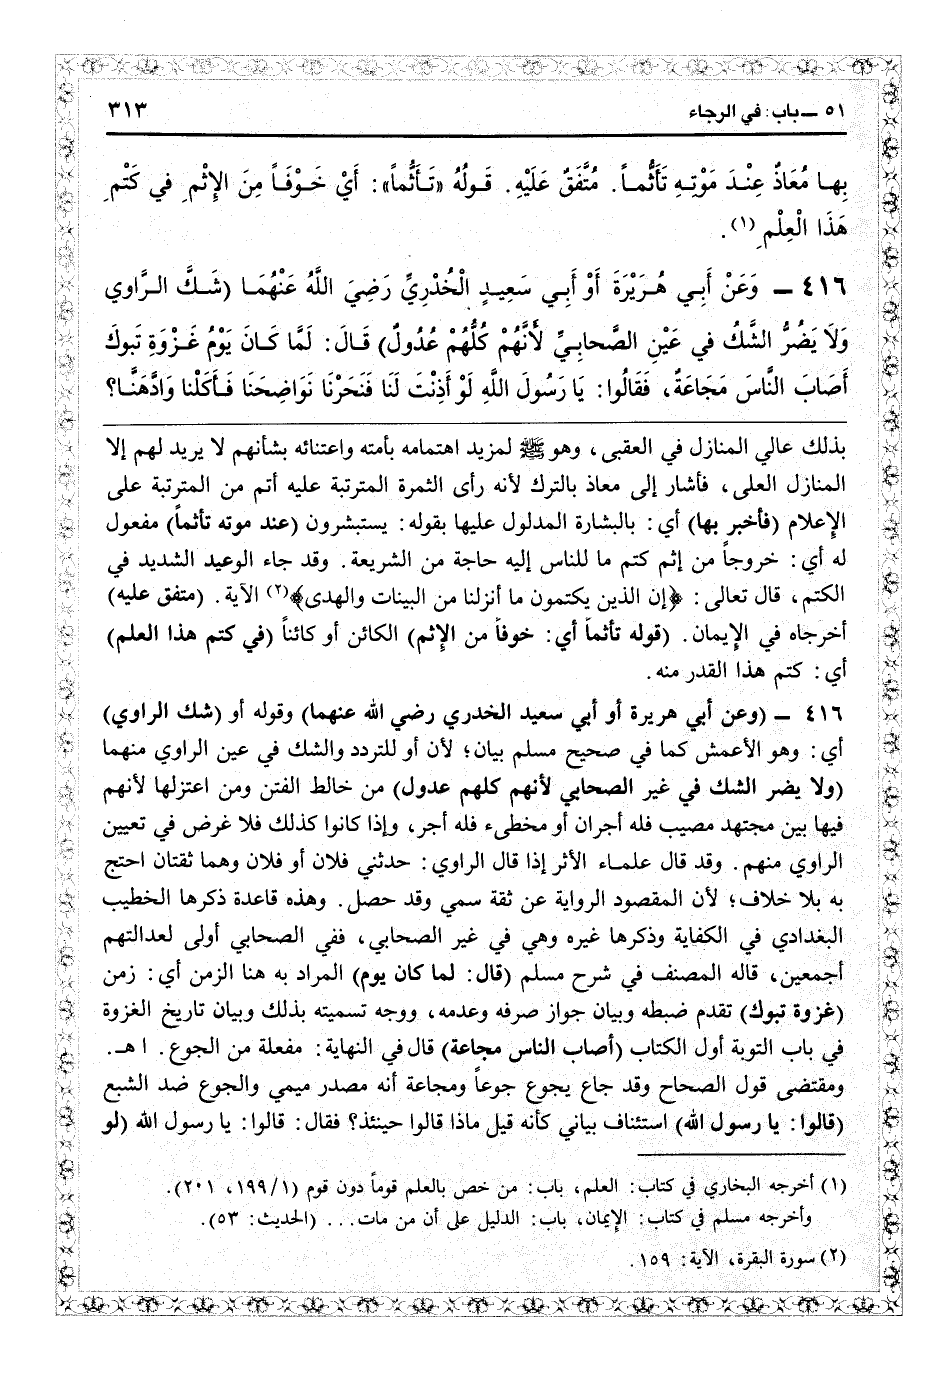 ٥١ ـ باب: في الرجاء ٣١٣
بِهـا مُعَاذٌ عِنْـدَ مَوْتِـهِ تَأَثُّمـاً. مُتَّفَقٌ عَلَيْهِ. قَـولُهُ «تَـأَثُّماً»: أَيْ خَـوْفَـاً مِنَ الإِثْـمِ في كَتْمِ
هَذَا الْعِلْمِ (١).
٤١٦ ـ وَعَنْ أَبـي هُـرَيْرَةَ أَوْ أَبـي سَعِيـدٍ الْخُدْرِيِّ رَضِيَ اللَّهُ عَنْهُمَـا (شَـكَّ الـرَّاوي
وَلَا يَضُرُّ الشَّكُّ في عَيْنِ الصَّحابِيِّ لأَنَّهُمْ كُلُّهُمْ عُدُولٌ) قَالَ: لَمَّا كَـانَ يَوْمُ غَـزْوَةِ تَبوكَ
أَصَابَ النَّاسَ مَجَاعَةٌ، فَقَالُوا: يَا رَسُولَ اللَّهِ لَوْ أَذِنْتَ لَنَا فَنَحَرْنَا نَوَاضِحَنَا فَـأَكَلْنَا وَادَّهَنَّـا؟
بذلك عالي المنازل في العقبى، وهو ﷺ لمزيد اهتمامه بأمته واعتنائه بشأنهم لا يريد لهم إلا
المنازل العلى، فأشار إلى معاذ بالترك لأنه رأى الثمرة المترتبة عليه أتم من المترتبة على
الإعلام (فأخبر بها) أي: بالبشارة المدلول عليها بقوله: يستبشرون (عند موته تأثماً) مفعول
له أي: خروجاً من إثم كتم ما للناس إليه حاجة من الشريعة. وقد جاء الوعيد الشديد في
الكتم، قال تعالى: ﴿إن الذين يكتمون ما أنزلنا من البينات والهدى﴾(٢) الآية. (متفق عليه)
أخرجاه في الإيمان. (قوله تأثماً أي: خوفاً من الإثم) الكائن أو كائناً (في كتم هذا العلم)
أي: كتم هذا القدر منه.
٤١٦ ـ (وعن أبي هريرة أو أبي سعيد الخدري رضي الله عنهما) وقوله أو (شك الراوي)
أي: وهو الأعمش كما في صحيح مسلم بيان؛ لأن أو للتردد والشك في عين الراوي منهما
(ولا يضر الشك في غير الصحابي لأنهم كلهم عدول) من خالط الفتن ومن اعتزلها لأنهم
فيها بين مجتهد مصيب فله أجران أو مخطىء فله أجر، وإذا كانوا كذلك فلا غرض في تعيين
الراوي منهم. وقد قال علماء الأثر إذا قال الراوي: حدثني فلان أو فلان وهما ثقتان احتج
به بلا خلاف؛ لأن المقصود الرواية عن ثقة سمي وقد حصل. وهذه قاعدة ذكرها الخطيب
البغدادي في الكفاية وذكرها غيره وهي في غير الصحابي، ففي الصحابي أولى لعدالتهم
أجمعين، قاله المصنف في شرح مسلم (قال: لما كان يوم) المراد به هنا الزمن أي: زمن
(غزوة تبوك) تقدم ضبطه وبيان جواز صرفه وعدمه، ووجه تسميته بذلك وبيان تاريخ الغزوة
في باب التوبة أول الكتاب (أصاب الناس مجاعة) قال في النهاية: مفعلة من الجوع. ا هـ.
ومقتضى قول الصحاح وقد جاع يجوع جوعاً ومجاعة أنه مصدر ميمي والجوع ضد الشبع
(قالوا: يا رسول الله) استئناف بياني كأنه قيل ماذا قالوا حينئذ؟ فقال: قالوا: يا رسول الله (لو
(١) أخرجه البخاري في كتاب: العلم، باب: من خص بالعلم قوماً دون قوم (١/١٩٩، ٢٠١).
وأخرجه مسلم في كتاب: الإيمان، باب: الدليل على أن من مات... (الحديث: ٥٣).
(٢) سورة البقرة، الآية: ١٥٩.